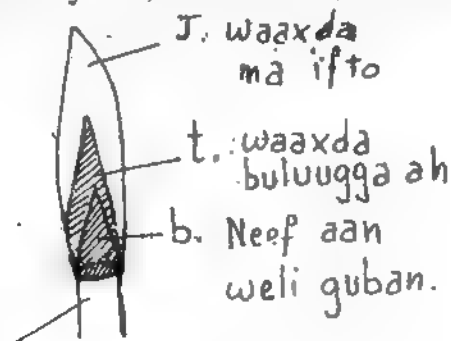 J. waaxda
ma ifto
t. waaxda
buluugga ah
b. Neef aan
weli guban.